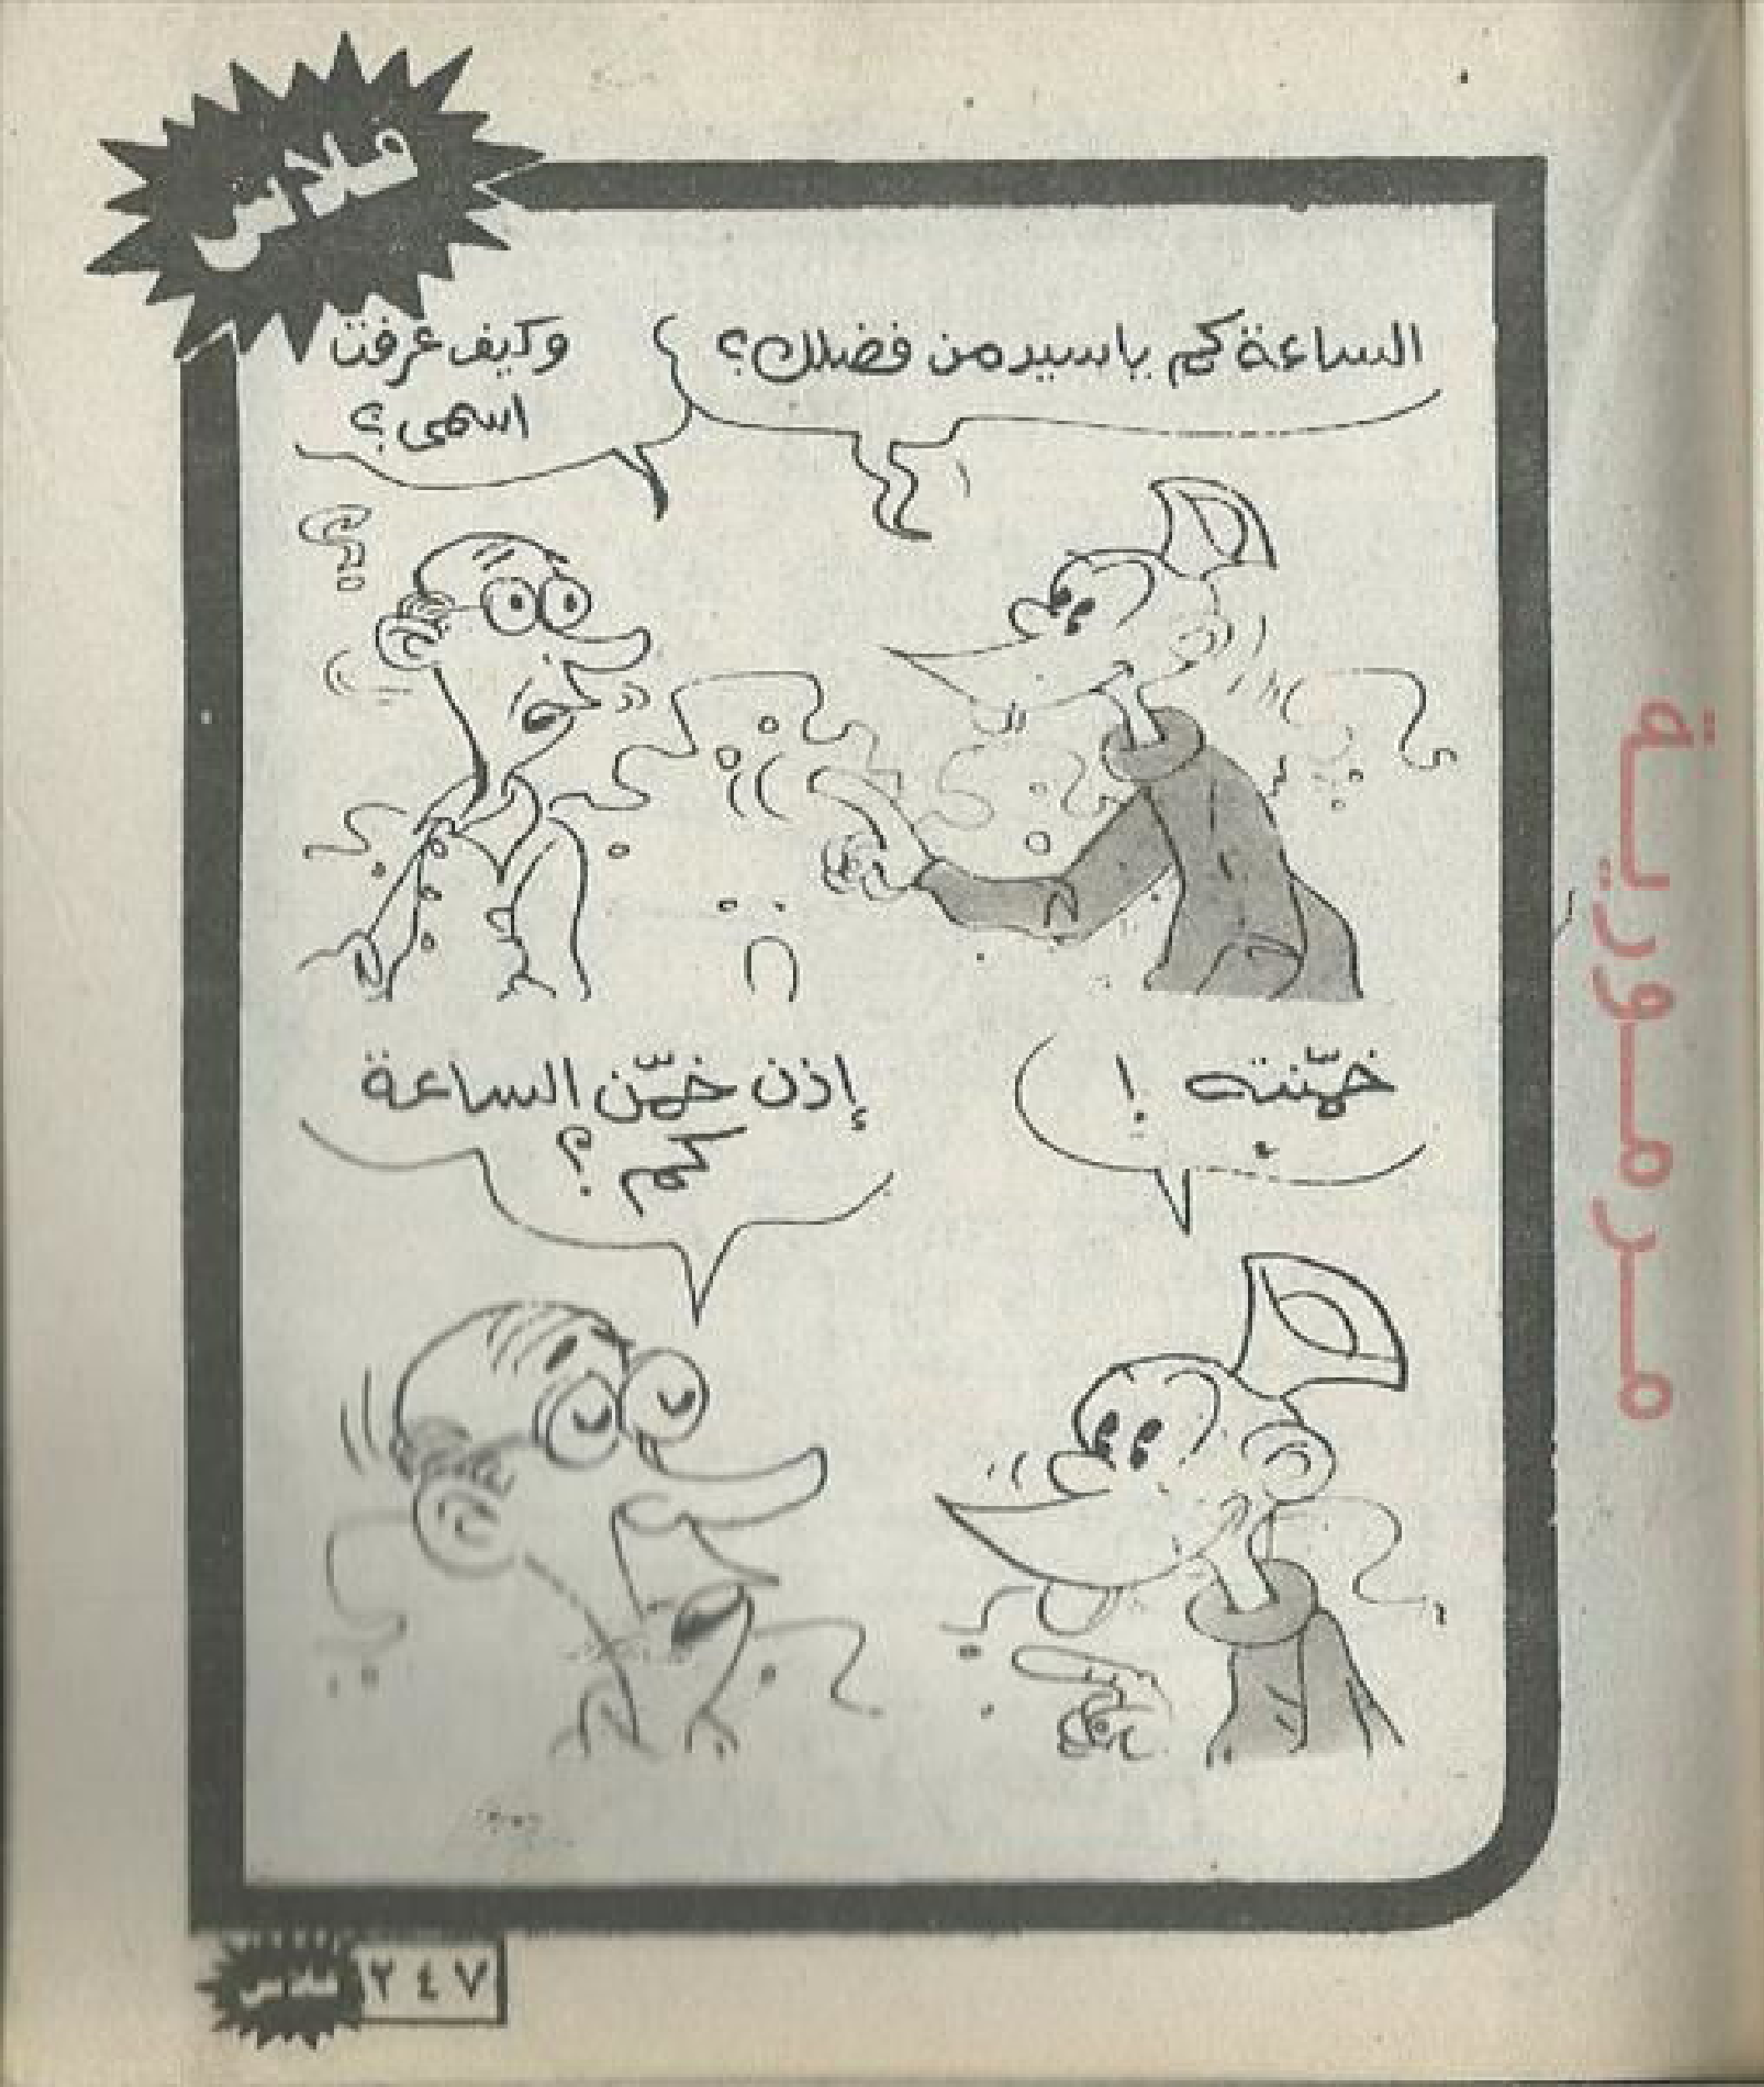 فلاش
الساعة كم ياسيد من فضلك؟
وكيف عرفت
اسمى؟
خمّنته !
إذن خمّن الساعة
كم ؟
مرمورية
فلاش
٢٤٧